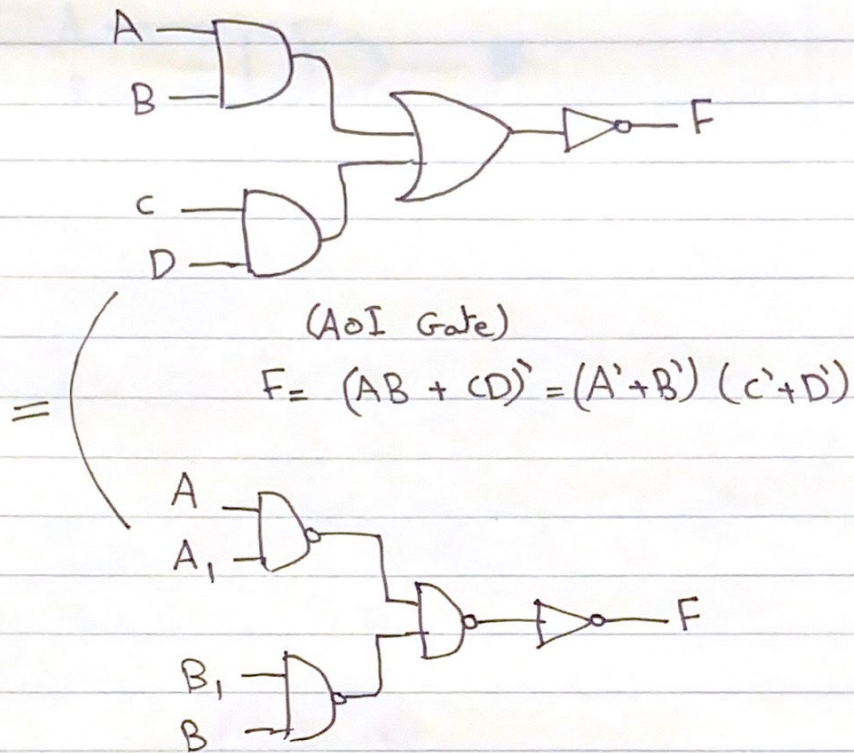 A
B
F
C
D
(AOI Gate)
= F = (AB + CD)' = (A'+B') (C'+D')
A
A₁
F
B₁
B